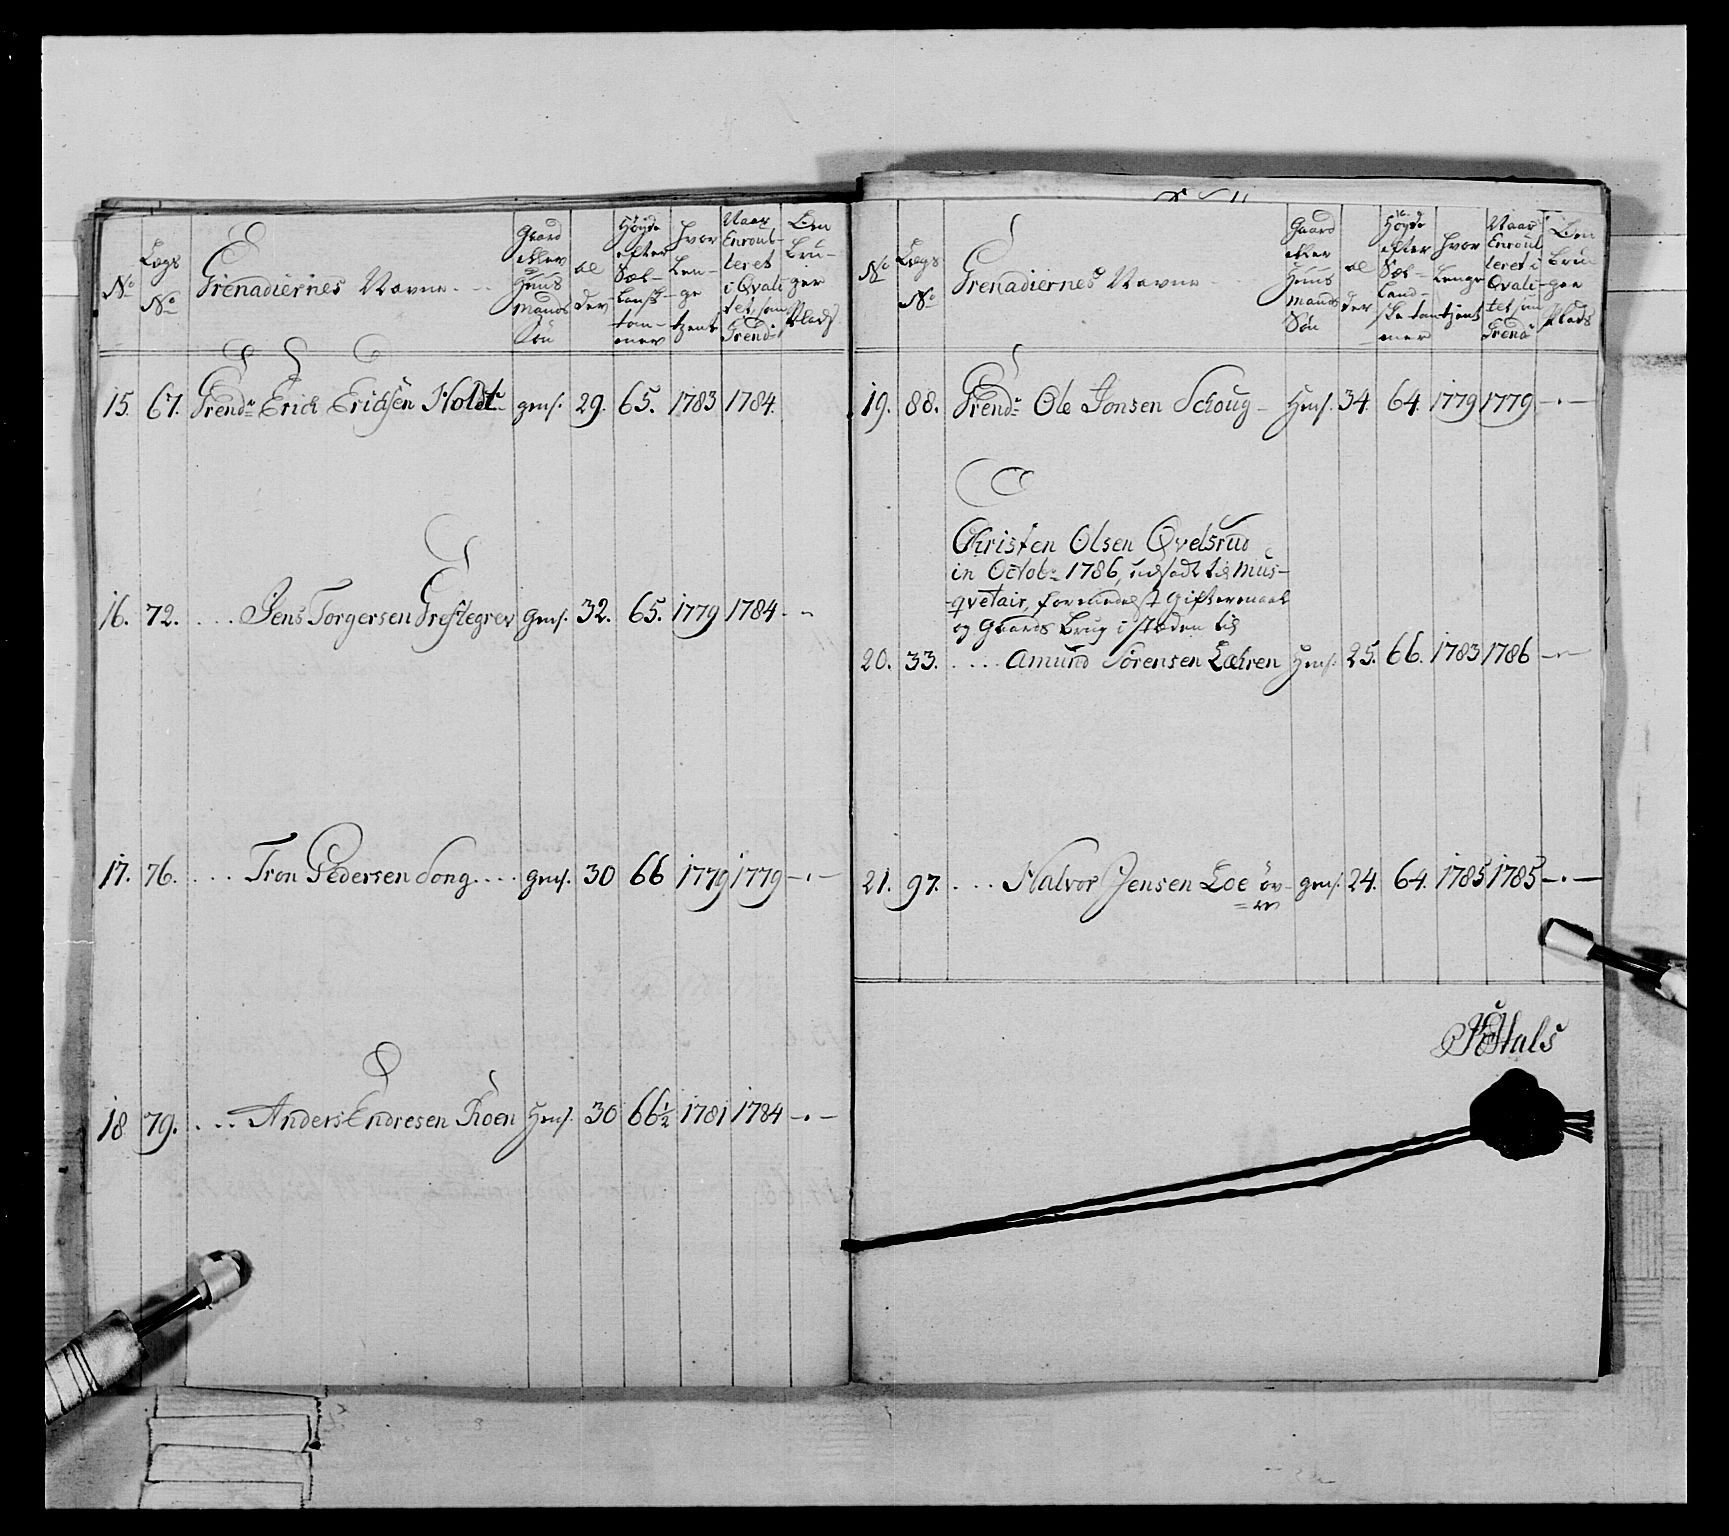 No
Lægs No
Grenadiernes Navne
Gaard eller Huus Mands Søn
Alder
Høyde efter Sæl-landsk tom-mer
Hvor Len-ge tient
Naar Enroul-leret i Qvali-tet som Grend:
Om Bru-ger Plads
15. 67. Grendr Erick Ericksen Holdt gms. 29. 65. 1783 1784.
16. 72. .... Jens Torgersen Prestegrev gms. 32. 65. 1779 1784 -
17. 76. .... Tron Pedersen Song .... gms. 30 66 1779 1779 -.-
18 79. .... Anders Endresen Roen Hms. 30 66½ 1781 1784 -.-
No
Lægs No
Grenadiernes Navne
Gaard eller Huus Mands Søn
Alder
Høyde efter Sæl-land-ske tom-mer
Hvor Lenge tient
Naar Enroul-leret i Qvali-tet som Grend
Om Bru-ger Plads
19. 88. Grendr Ole Jonsen Schoug - Hms. 34 64. 1779 1779 -.-
Christen Olsen Qvelsrud
in Octobr 1786, udsadt til Mus-
qvetair, formedelst Giftermaal
og Gaards Brug i steden til
20. 33. .... Amund Sørensen Læhren Hms. 25. 66. 1783 1786 -.-
21. 97. .... Halvor Jensen Loe öv- gms. 24. 64. 1785 1785 -.-
= re
Hals